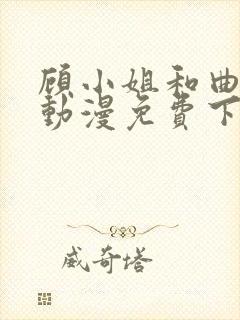 顾小姐和曲
動漫免費下
威奇塔